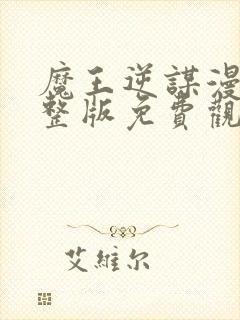 魔王逆謀漫
整版免費觀
艾維尔